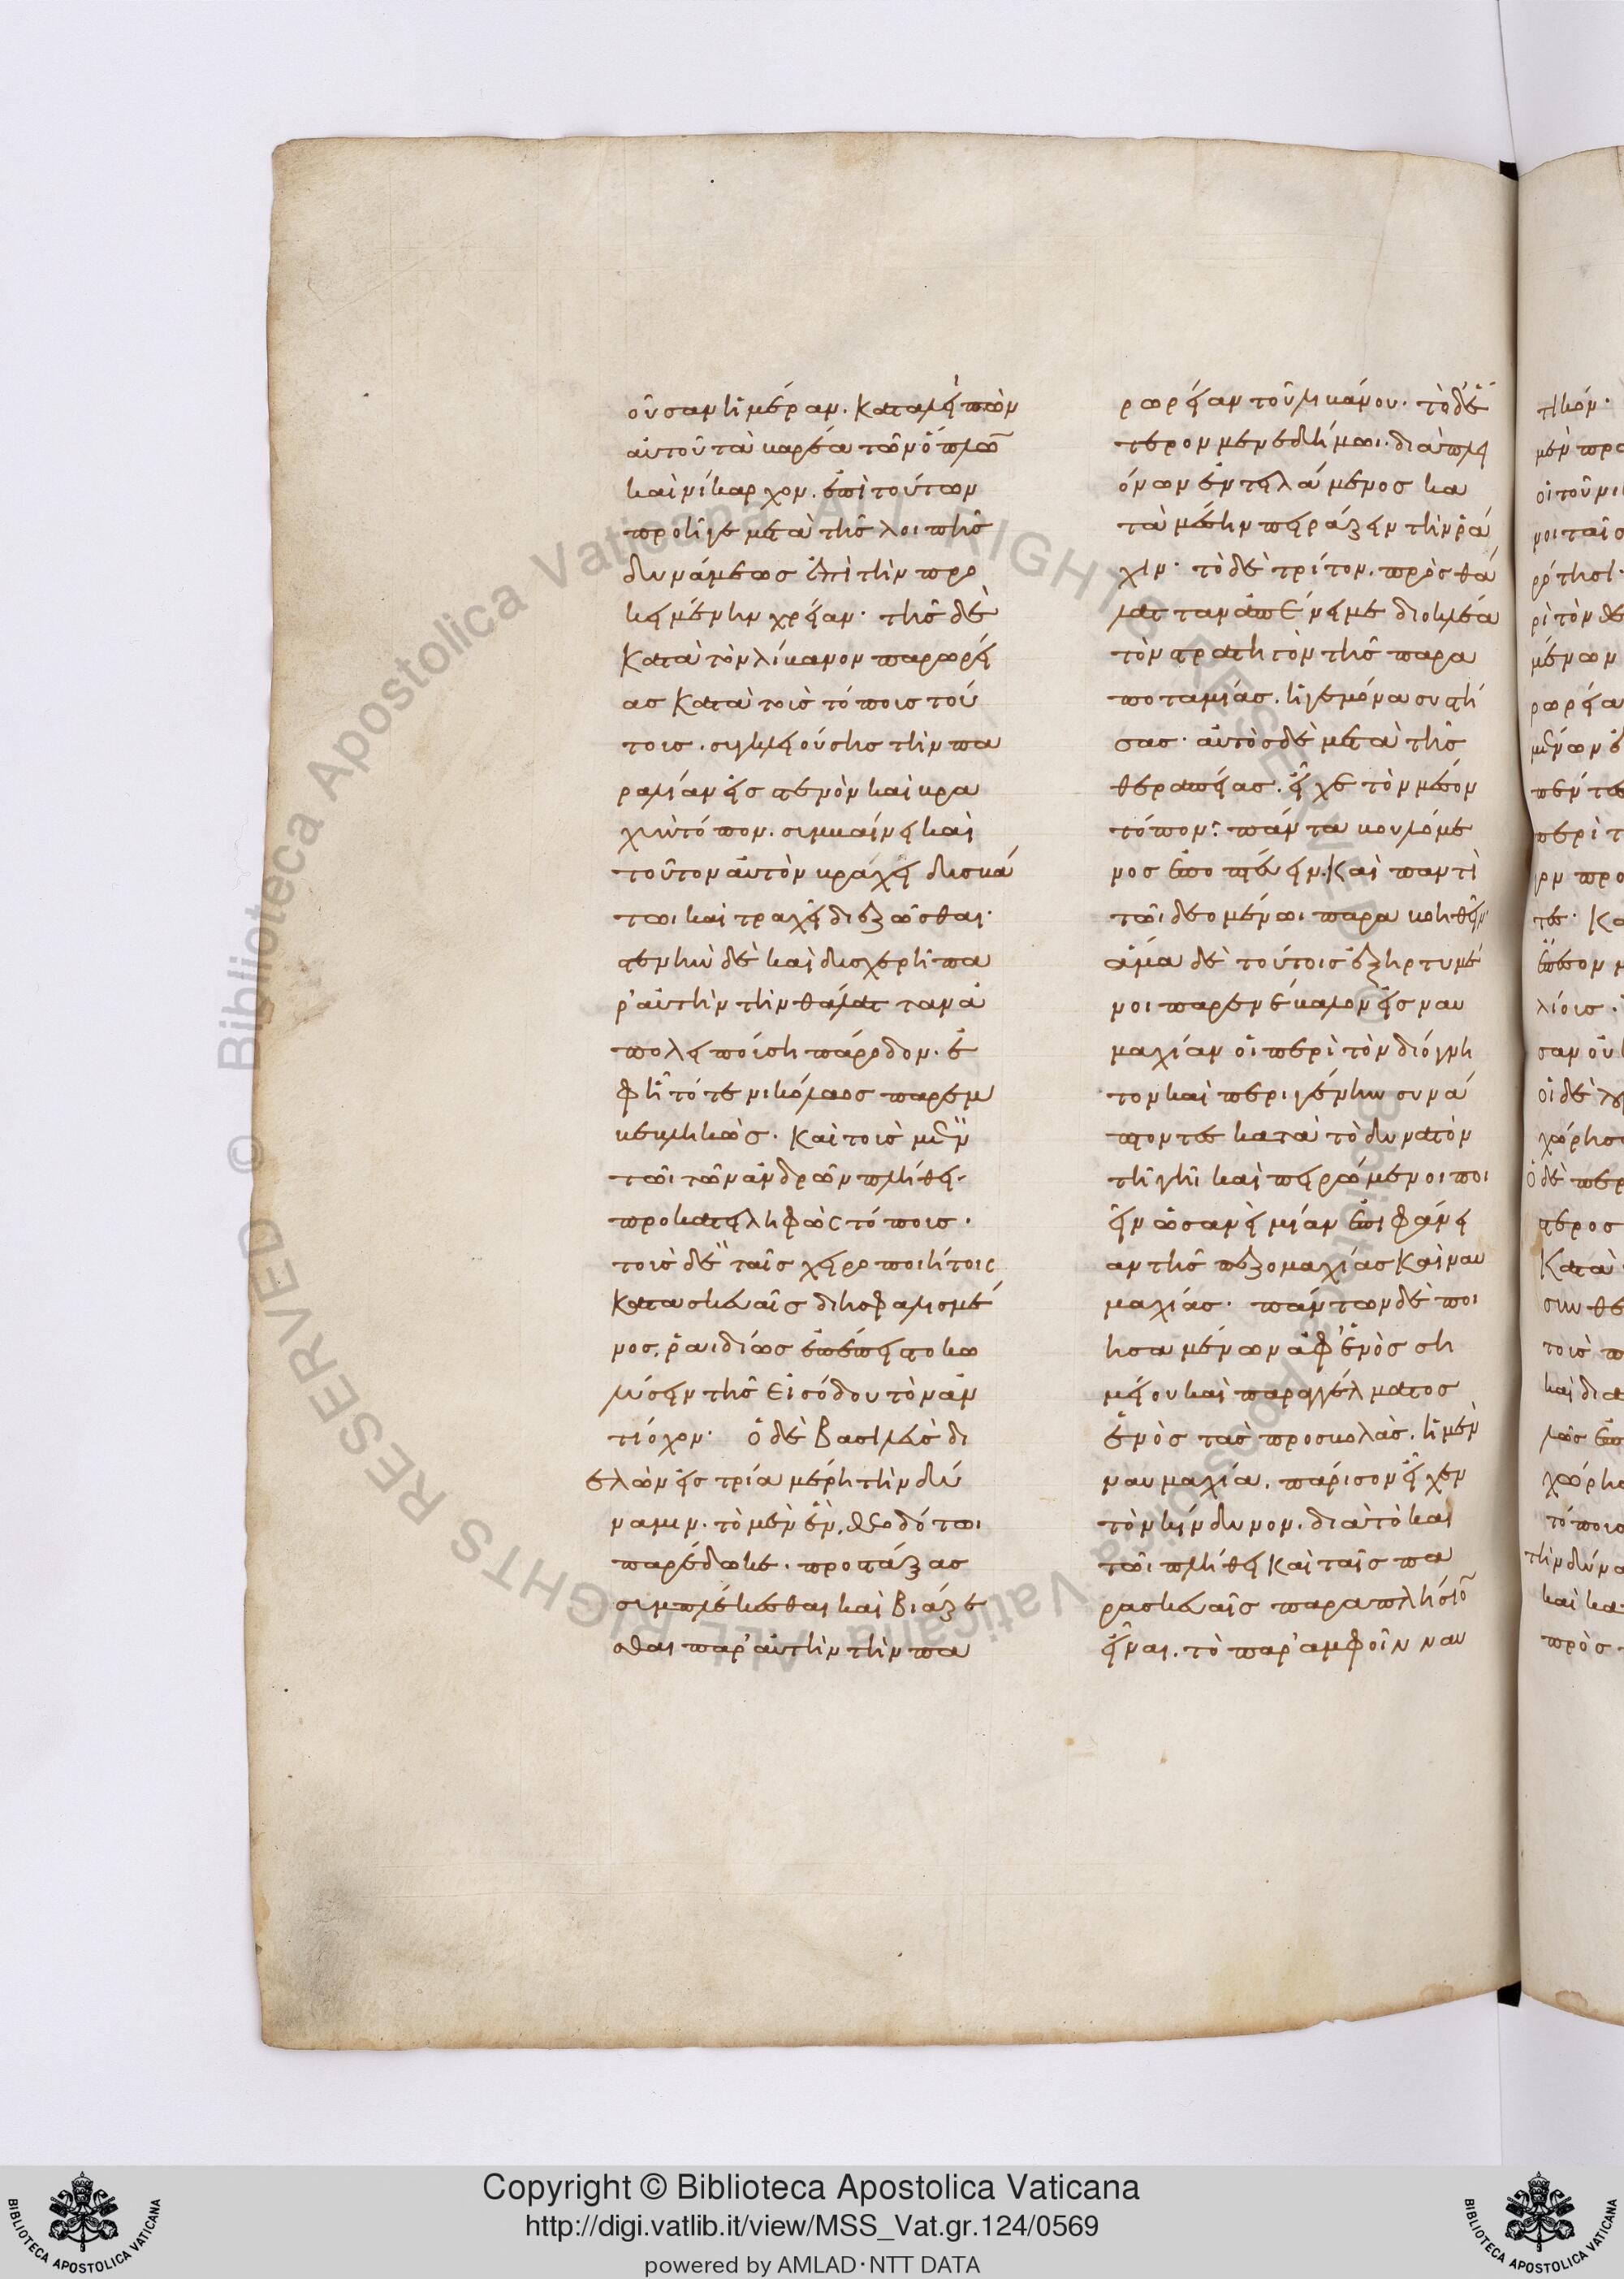 οῦσαν ἡμέραν. καταλειπὼν
αὐτοῦ τὰ βαρέα τῶν ὅπλω̅
καὶ νίκαρχον. ἐπὶ τούτων
προῆγε μετὰ τῆς λοιπῆς
δυνάμεως ἐπὶ τὴν προ
κειμένην χρείαν· τῆς δὲ
κατὰ τὸν λίβανον παρωρεί
ας κατὰ τοὺς τόπους τού
τους. συγκλειούσης τὴν πα
ραλίαν εἰς στενὸν καὶ βρα
χὺν τόπον. συμβαίνει καὶ
τοῦτον αὐτὸν βράχει δυσβά
τωι καὶ τραχεῖ διεζῶσθαι·
στενὴν δὲ καὶ δυσχερῆ πα
ρ᾽ αὐτὴν τὴν θάλατταν ἀ
πολειποίση πάροδον. ἐ
φ῾ ἧ τότε νικόλαος παρεμ
βεβληκὼς. καὶ τοὺς μὲν
τῶι τῶν ἀνδρῶν πλήθει.
προκατειληφὼς τόπους.
τοὺς δὲ ταῖς χειροποιήτοις
κατασκευαῖς διησφαλισμέ
νος. ῥαιδίως ἐπέπειστο κω
λύσειν τῆς εἰσόδου τὸν ἀν
τίοχον· ὁ δὲ βασιλεὺς δι
ελὼν εἰς τρία μέρη τὴν δύ
ναμιν. τὸ μὲν ἓν. θεοδότωι
παρέδωκε. προστάξας
συμπλέκεσθαι καὶ βιάζε
σθαι παρ᾽ αὐτὴν τὴν πα
ρωρείαν τοῦ λιβάνου. τὸ δ᾽ ἕ
τερον μενεδήμωι. διὰ πλει
όνων ἐντειλάμενος κα
τὰ μέσην πειράζειν τὴν ῥά
χιν· τὸ δὲ τρίτον. πρὸς θά
λατταν ἀπένειμε διοκλέα
τὸν στρατηγὸν τῆς παρα
ποταμίας. ἡγεμόνα συστή
σας· αὐτὸς δὲ μετὰ τῆς
θεραπείας. εἶχε τὸν μέσον
τόπον· πάντα βουλόμε
νος ἐποπτεύειν. καὶ παντὶ
τῶι δεομένωι παραβοηθεῖν·
ἅμα δὲ τούτοις ἐξηρτυμέ
νοι παρενέβαλον εἰς ναυ
μαχίαν οἱ περὶ τὸν διόγνη
τον καὶ περιγένην συνά
πτοντες κατὰ τὸ δυνατὸν
τῆ γῆ καὶ πειρώμενοι ποι
εῖν ὡσανεὶ μίαν ἐπιφάνει
αν τῆς πεζομαχίας καὶ ναυ
μαχίας· πάντων δὲ ποι
ησαμένων ἀφ᾽ ἑνὸς ση
μείου καὶ παραγγέλματος
ἑνὸς τὰς προσβολὰς. ἡ μὲν
ναυμαχία. πάρισον εἶχεν
τὸν κίνδυνον. διὰ τὸ καὶ
τῶι πλήθει καὶ ταῖς πα
ρασκευαῖς παραπλήσιο̅
εἶναι. τὸ παρ᾽ ἀμφοῖν ναυ
Copyright © Biblioteca Apostolica Vaticana
http://digi.vatlib.it/view/MSS_Vat.gr.124/0569
powered by AMLAD·NTT DATA
BIBLIOTECA APOSTOLICA VATICANA
BIBLIOTECA APOSTOLICA VATICANA
© Biblioteca Apostolica Vaticana ALL RIGHTS RESERVED